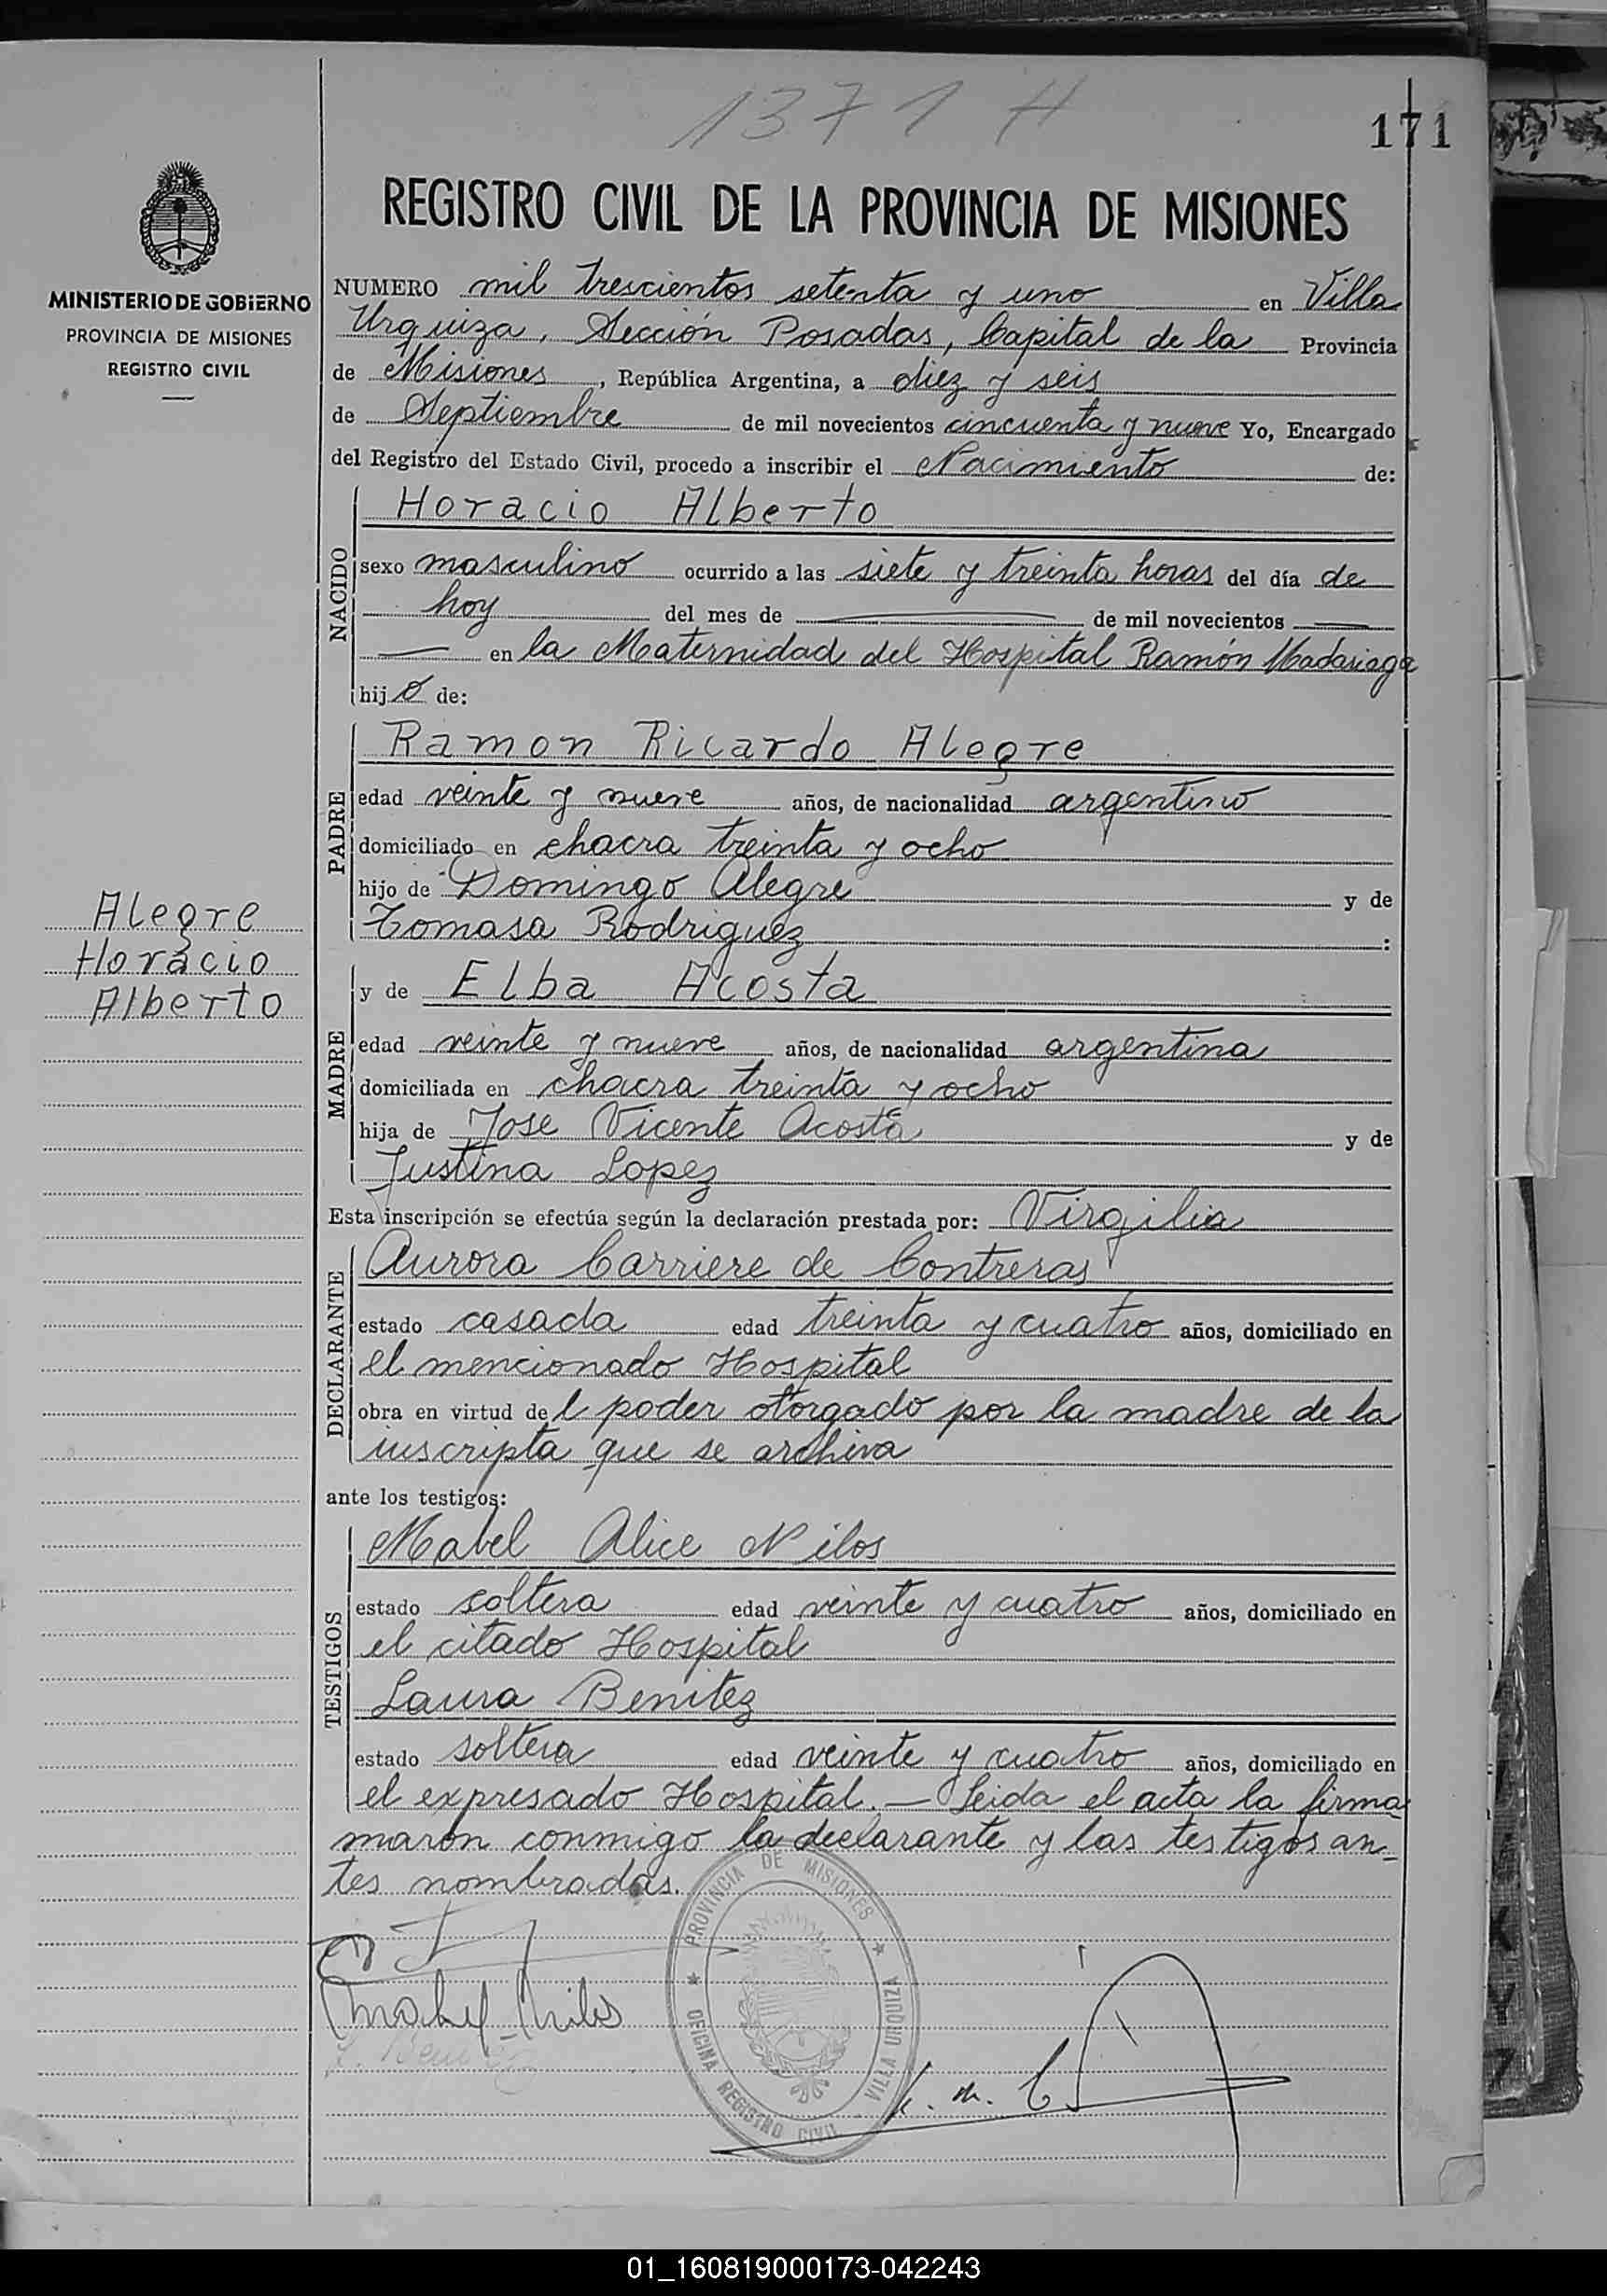 1371 H
171
REGISTRO CIVIL DE LA PROVINCIA DE MISIONES
MINISTERIO DE GOBIERNO
PROVINCIA DE MISIONES
REGISTRO CIVIL
NUMERO mil trescientos setenta y uno en Villa
Urquiza, Sección Posadas, Capital de la Provincia
de Misiones, República Argentina, a diez y seis
de Septiembre de mil novecientos cincuenta y nueve Yo, Encargado
del Registro del Estado Civil, procedo a inscribir el Nacimiento de:
NACIDO
Horacio Alberto
sexo masculino ocurrido a las siete y treinta horas del día de
hoy del mes de — de mil novecientos —
— en la Maternidad del Hospital Ramón Madariaga
hijo de:
PADRE
Ramon Ricardo Alegre
edad veinte y nueve años, de nacionalidad argentino
domiciliado en chacra treinta y ocho
hijo de Domingo Alegre y de
Tomasa Rodriguez :
Alegre
Horacio
Alberto
MADRE
y de Elba Acosta
edad veinte y nueve años, de nacionalidad argentina
domiciliada en chacra treinta y ocho
hija de Jose Vicente Acosta y de
Justina Lopez
Esta inscripción se efectúa según la declaración prestada por: Virgilia
DECLARANTE
Aurora Carriere de Contreras
estado casada edad treinta y cuatro años, domiciliado en
el mencionado Hospital
obra en virtud del poder otorgado por la madre de la
inscripta que se archiva
ante los testigos:
TESTIGOS
Mabel Alice Nilos
estado soltera edad veinte y cuatro años, domiciliado en
el citado Hospital
Laura Benitez
estado soltera edad veinte y cuatro años, domiciliado en
el expresado Hospital. — Leida el acta la firma
maron conmigo la declarante y las testigos an-
tes nombradas.
PROVINCIA DE MISIONES
OFICINA REGISTRO CIVIL VILLA URQUIZA
Mabel Nilos
L. Benitez
01_160819000173-042243